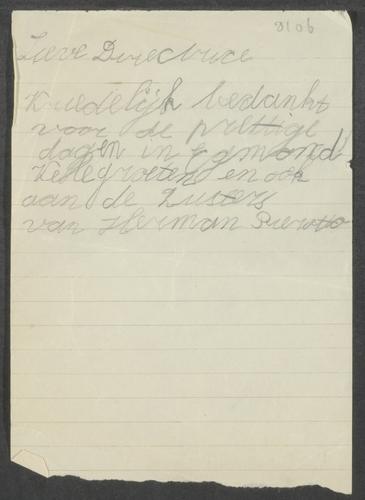 9106
Lieve Directrice
Vriedelijk bedankt
voor de prettige
dagen in Egmond
Vele groetens en ook
aan de Zusters
van Herman